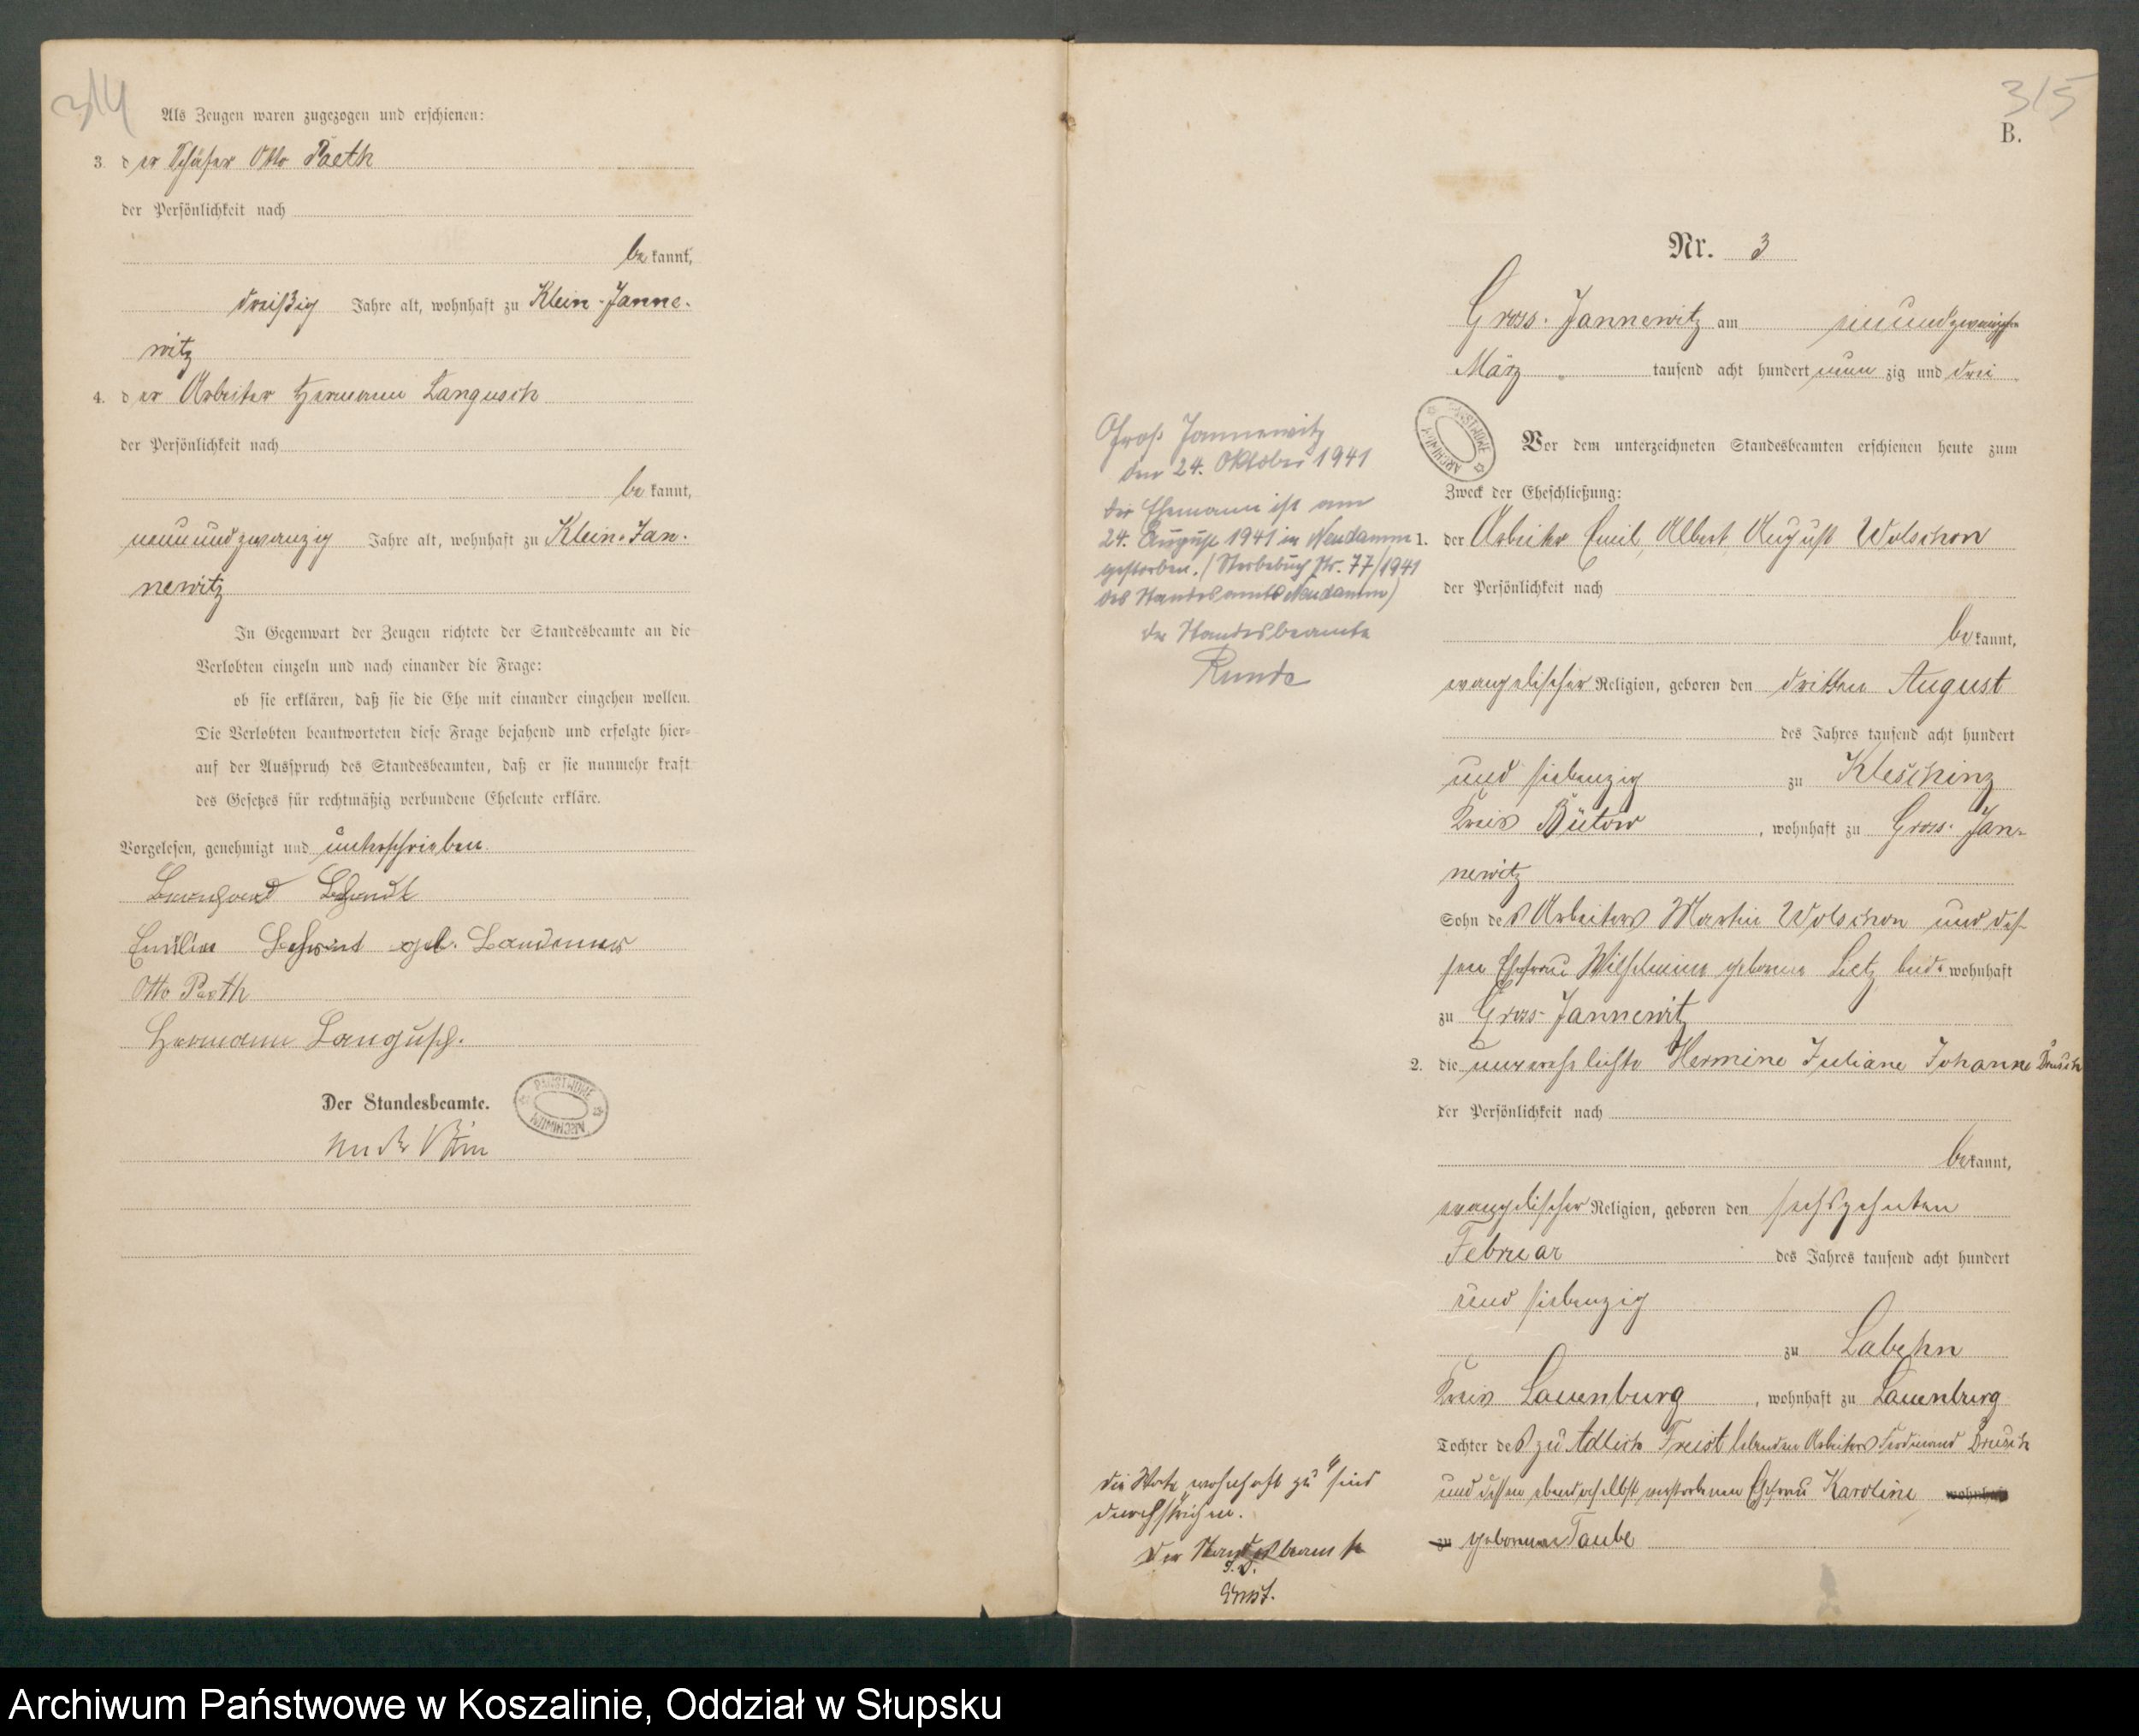 314
Als Zeugen waren zugezogen und erschienen:
3. der Schäfer Otto Paeth
der Persönlichkeit nach
bekannt,
dreißig Jahre alt, wohnhaft zu Klein-Janne-
witz
4. der Arbeiter Hermann Langusch
der Persönlichkeit nach
bekannt,
neunundzwanzig Jahre alt, wohnhaft zu Klein-Jan-
newitz
In Gegenwart der Zeugen richtete der Standesbeamte an die
Verlobten einzeln und nach einander die Frage:
ob sie erklären, daß sie die Ehe mit einander eingehen wollen.
Die Verlobten beantworteten diese Frage bejahend und erfolgte hier-
auf der Ausspruch des Standesbeamten, daß er sie nunmehr kraft
des Gesetzes für rechtmäßig verbundene Eheleute erkläre.
Vorgelesen, genehmigt und unterschrieben
geb.
Otto Paeth
Hermann Langusch.
Der Standesbeamte.
PAŃSTWOWE ARCHIWUM
315
B.
Nr. 3
Gross-Jannewitz am einundzwanzigsten
März tausend acht hundert neunzig und drei
PAŃSTWOWE ARCHIWUM
Vor dem unterzeichneten Standesbeamten erschienen heute zum
Zweck der Eheschließung:
1. der Arbeiter Emil, Albert, August Wolschon
der Persönlichkeit nach
bekannt,
evangelischer Religion, geboren den dritten August
des Jahres tausend acht hundert
und siebenzig zu Kleschinz
Kreis Bütow, wohnhaft zu Gross-Jan-
newitz
Sohn des Arbeiters Martin Wolschon und des-
sen Ehefrau Wilhelmine geborene Lietz, beide wohnhaft
zu Gross-Jannewitz
2. die unverehelichte Hermine Juliane Johanne Drusch
der Persönlichkeit nach
bekannt,
evangelischer Religion, geboren den sechszehnten
Februar des Jahres tausend acht hundert
und siebenzig
zu Labehn
Kreis Lauenburg, wohnhaft zu Lauenburg
Tochter des zu Adlich Freist lebenden Arbeiters Ferdinand Drusch
und dessen ebendaselbst verstorbenen Ehefrau Karoline wohnhaft
zu geborene Taube
Groß Jannewitz
den 24. Oktober 1941
Der Ehemann ist am
24. August 1941 in Neudamm
gestorben. (Sterbebuch Nr. 77/1941
des Standesamts Neudamm)
Der Standesbeamte
Runde
Die Worte "wohnhaft zu" sind
durchstrichen.
Der Standesbeamte
Archiwum Państwowe w Koszalinie, Oddział w Słupsku